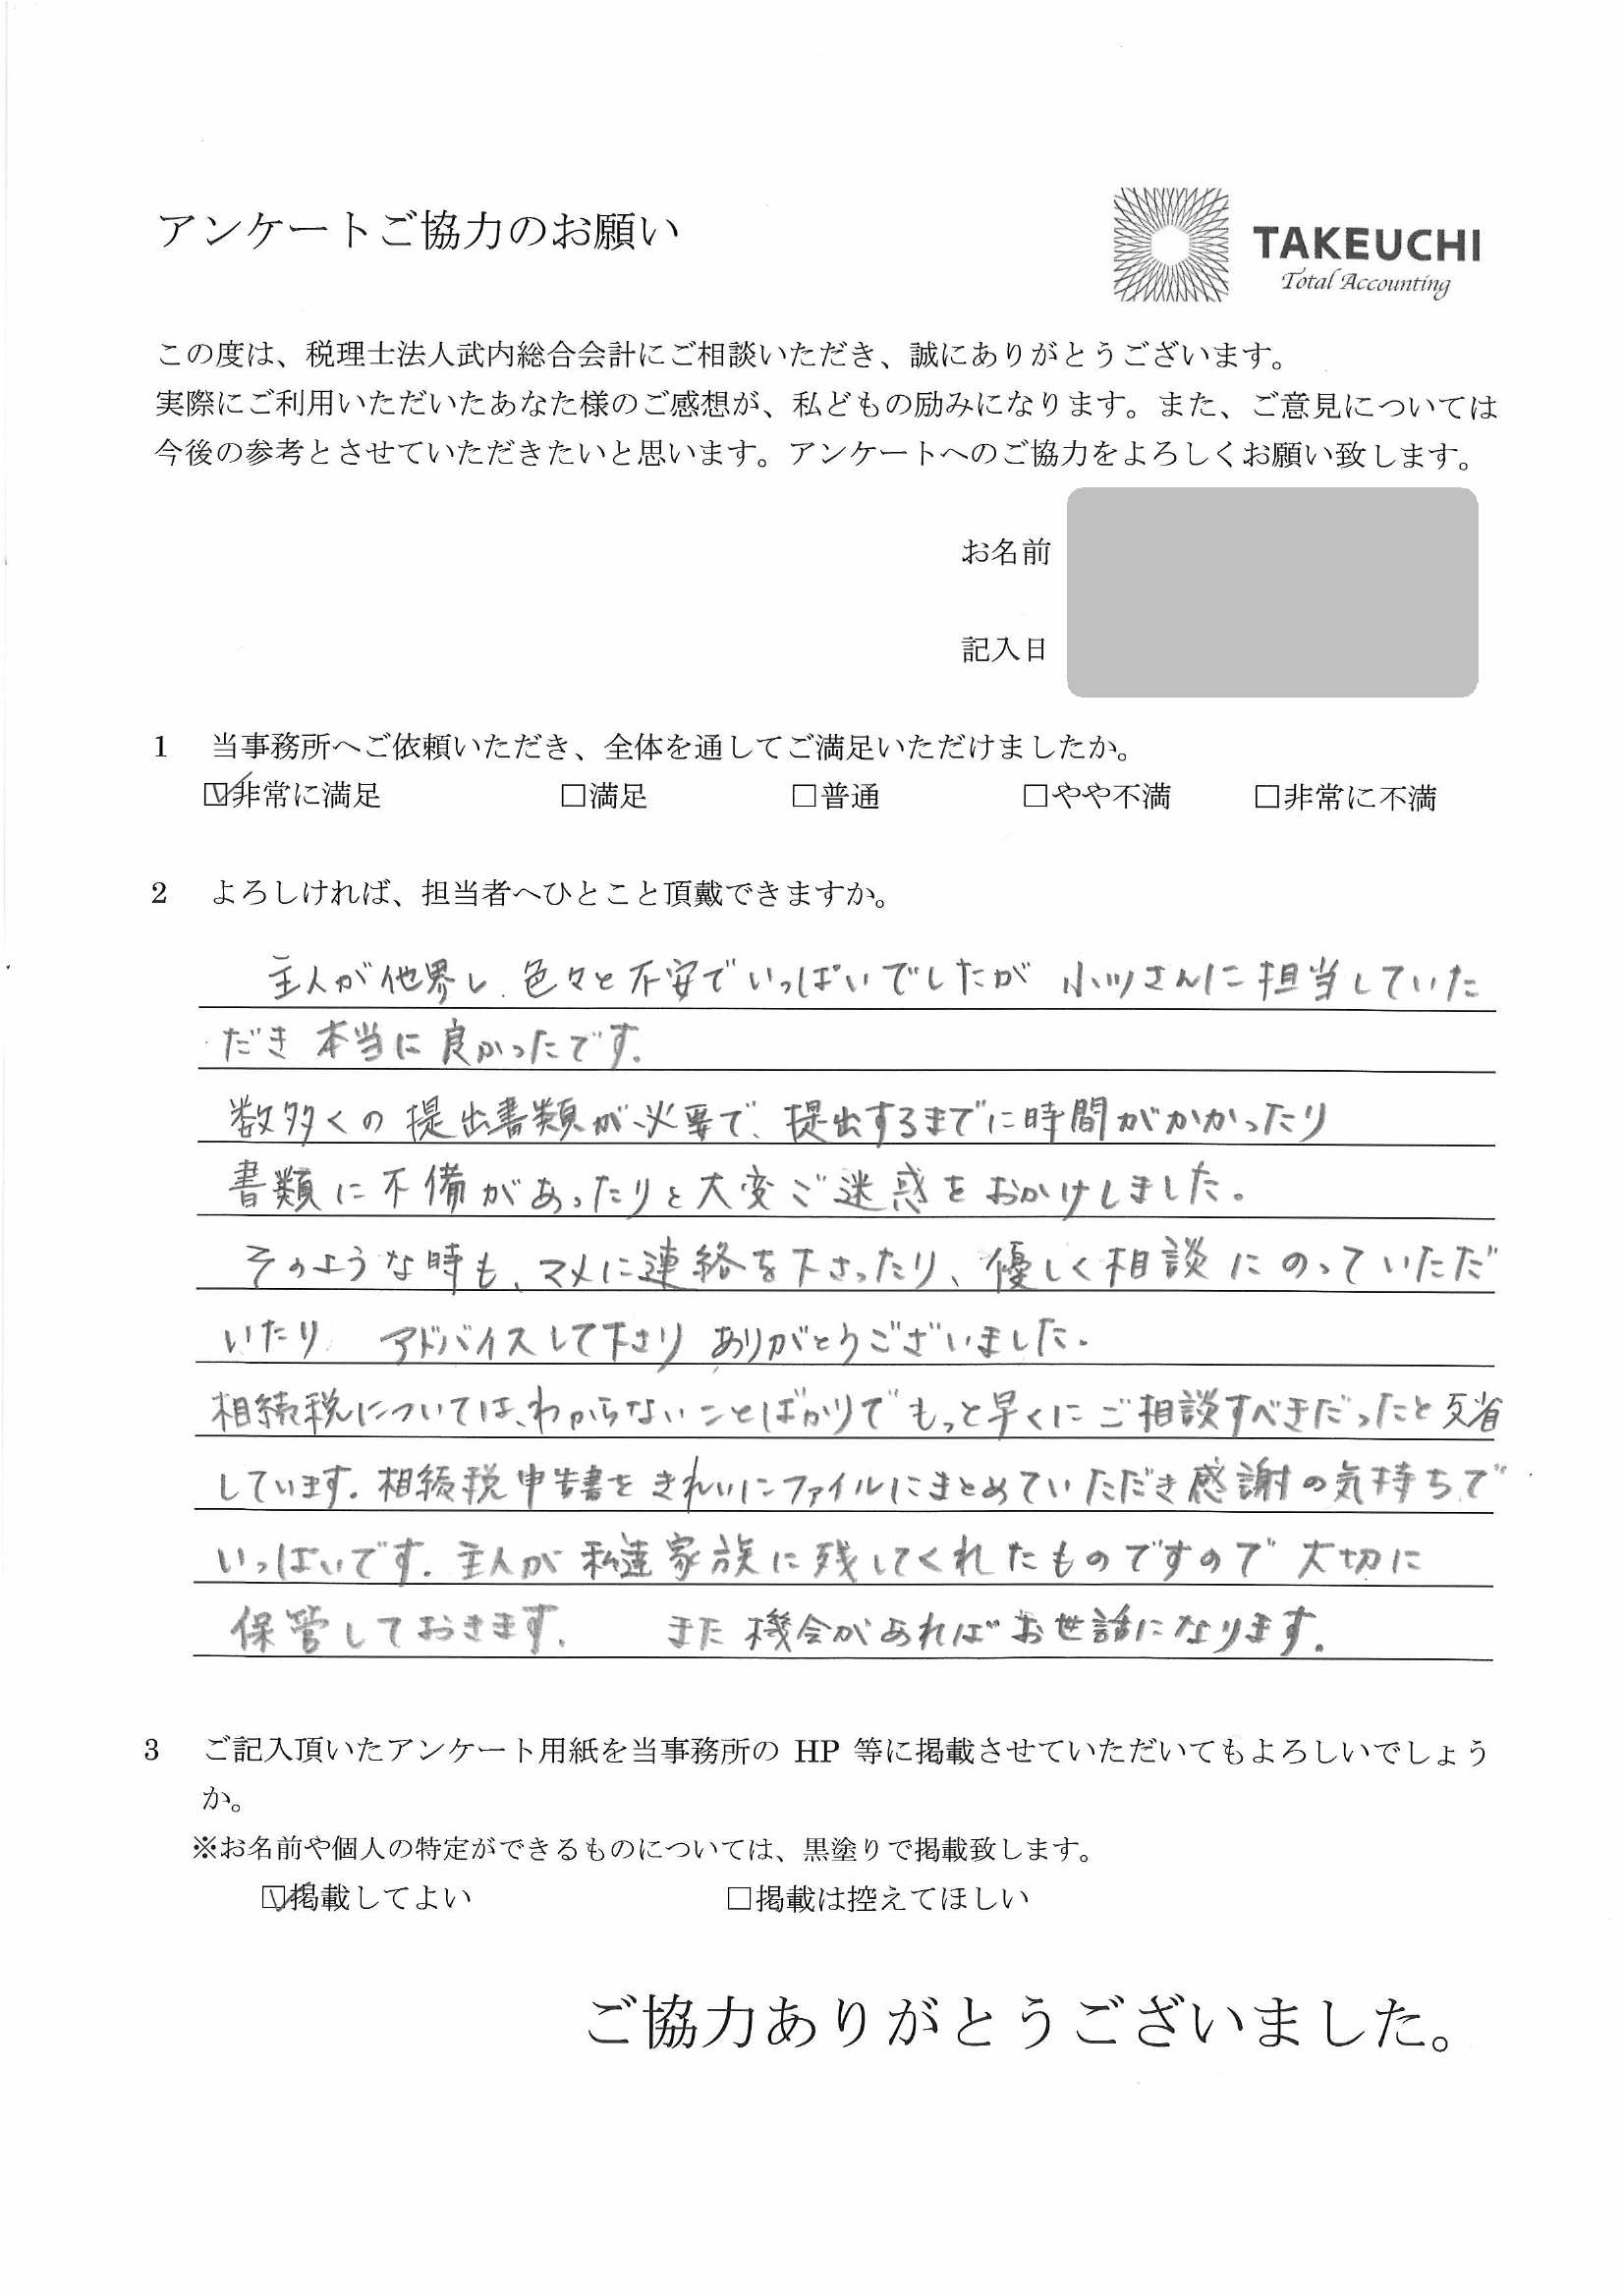 アンケートご協力のお願い
TAKEUCHI
Total Accounting
この度は、税理士法人武内総合会計にご相談いただき、誠にありがとうございます。
実際にご利用いただいたあなた様のご感想が、私どもの励みになります。また、ご意見については
今後の参考とさせていただきたいと思います。アンケートへのご協力をよろしくお願い致します。
お名前
記入日
1 当事務所へご依頼いただき、全体を通してご満足いただけましたか。
☑非常に満足 □満足 □普通 □やや不満 □非常に不満
2 よろしければ、担当者へひとこと頂戴できますか。
主人が他界し、色々と不安でいっぱいでしたが 小川さんに担当していた
だき 本当に良かったです。
数多くの提出書類が必要で、提出するまでに時間がかかったり
書類に不備があったりと大変ご迷惑をおかけしました。
そのような時も、マメに連絡を下さったり、優しく相談にのっていただ
いたり アドバイスして下さり ありがとうございました。
相続税については、わからないことばかりで もっと早くにご相談すべきだったと反省
しています。相続税申告書をきれいにファイルにまとめていただき感謝の気持ちで
いっぱいです。主人が私達家族に残してくれたものですので大切に
保管しておきます。 また機会があればお世話になります。
3 ご記入頂いたアンケート用紙を当事務所の HP 等に掲載させていただいてもよろしいでしょう
か。
※お名前や個人の特定ができるものについては、黒塗りで掲載致します。
☑掲載してよい □掲載は控えてほしい
ご協力ありがとうございました。